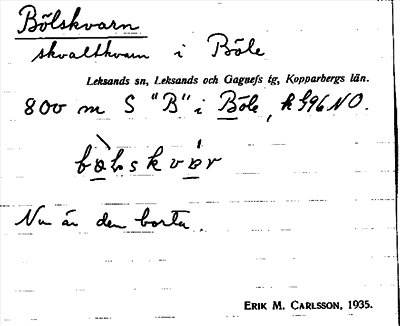 Bölskvarn
skvaltkvarn i Böle
Leksands sn, Leksands och Gagnefs tg, Kopparbergs län.
800 m S "B" i Böle, k 596 NO.
Nu är den borta.
ERIK M. CARLSSON, 1935.